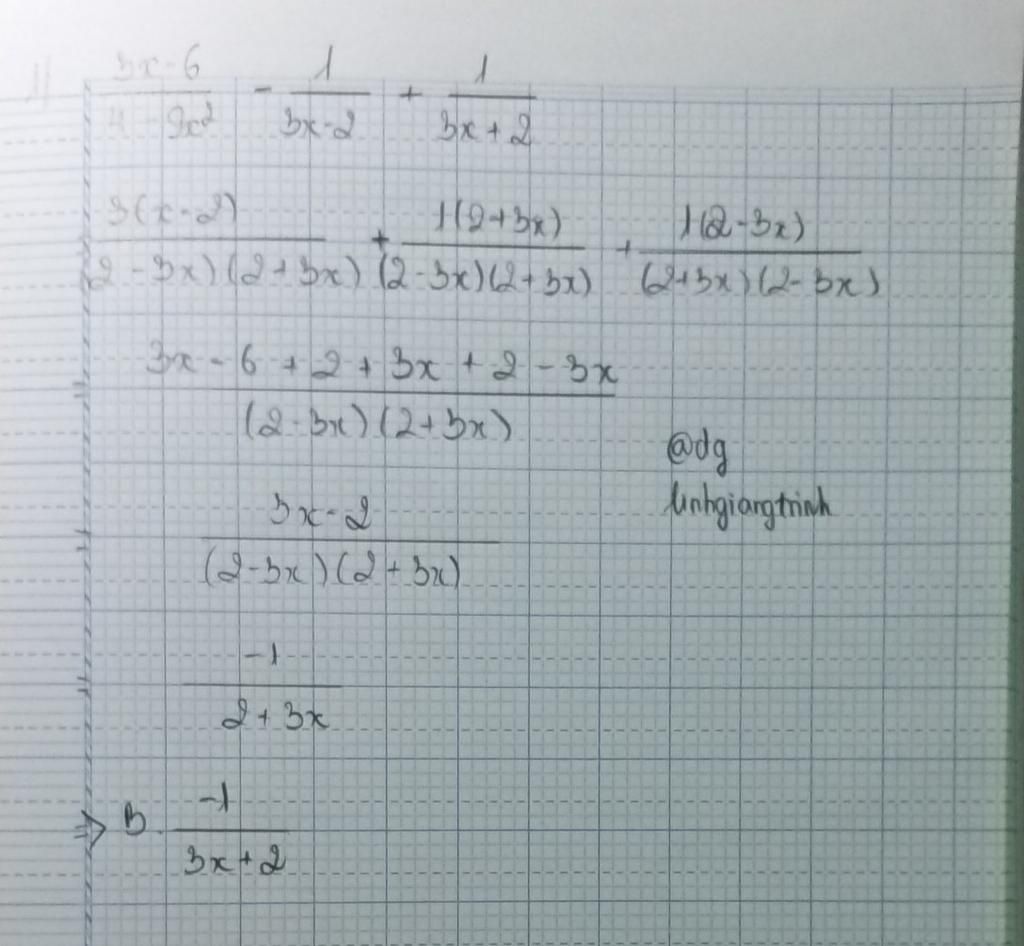 1) (3x - 6)/(4 - 9x²) - 1/(3x - 2) + 1/(3x + 2)
3(x - 2)/(2 - 3x)(2 + 3x) + 1(2 + 3x)/(2 - 3x)(2 + 3x) + 1(2 - 3x)/(2 + 3x)(2 - 3x)
= (3x - 6 + 2 + 3x + 2 - 3x)/(2 - 3x)(2 + 3x)
@dg
linhgiangtrinh
= (3x - 2)/(2 - 3x)(2 + 3x)
= -1/(2 + 3x)
=> B. -1/(3x + 2)